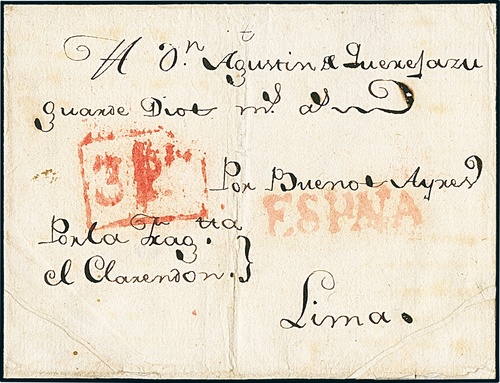 A Dn Agustin de Querejazu
guarde Dios ms. as.
Por Buenos Ayres
ESPÑA
Por la Fragta
el Clarendon.
Lima.